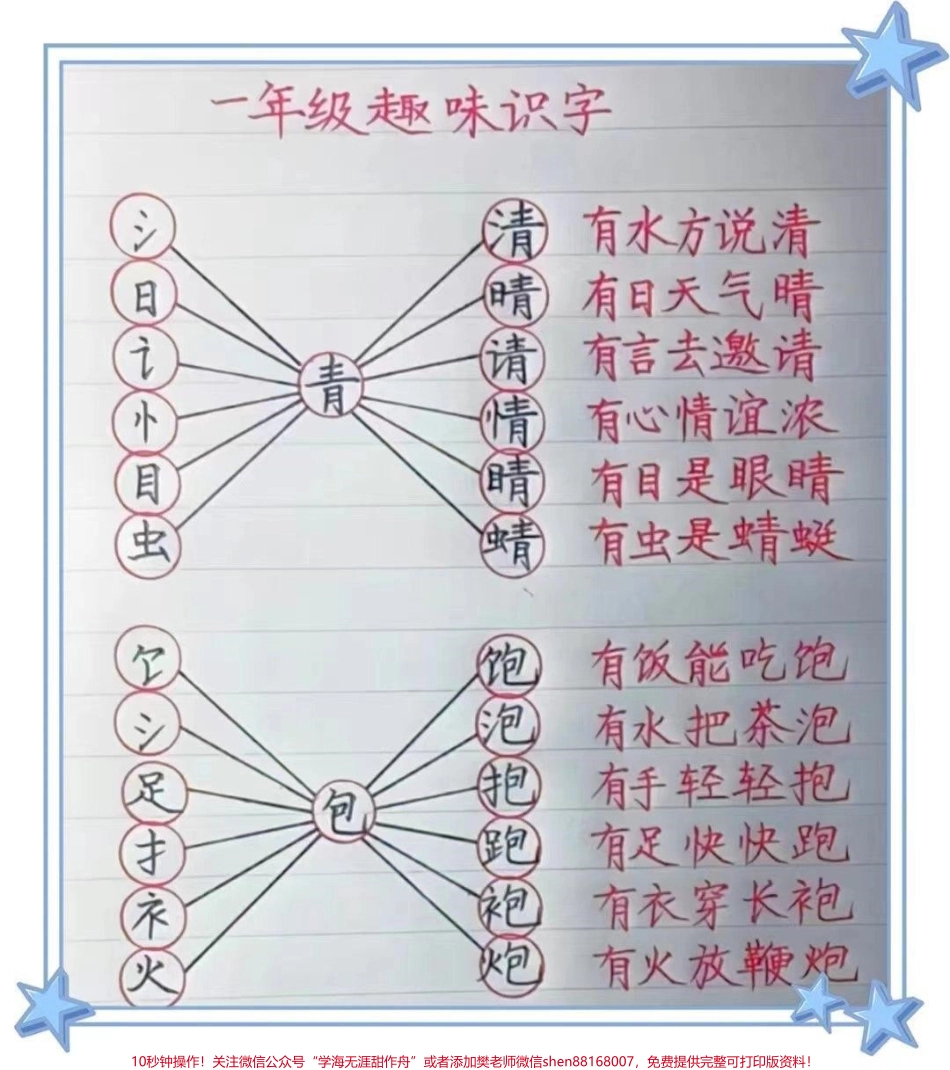 一年级趣味识字
氵 清 有水方说清
日 晴 有日天气晴
讠 请 有言去邀请
青
忄 情 有心情谊浓
目 睛 有目是眼睛
虫 蜻 有虫是蜻蜓
饣 饱 有饭能吃饱
氵 泡 有水把茶泡
足 抱 有手轻轻抱
包
扌 跑 有足快快跑
衤 袍 有衣穿长袍
火 炮 有火放鞭炮
10秒钟操作！关注微信公众号“学海无涯甜作舟”或者添加樊老师微信shen88168007，免费提供完整可打印版资料！